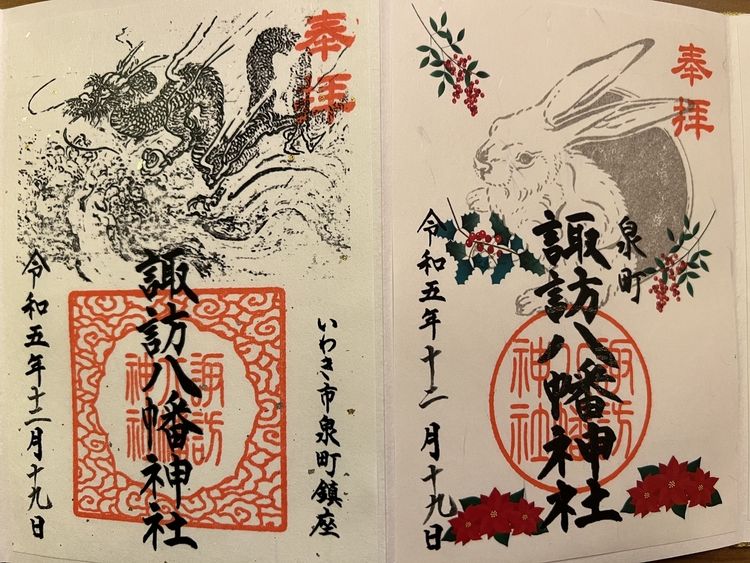 奉拝
いわき市泉町鎮座
諏訪八幡神社
諏訪八幡神社
令和五年十二月十九日
奉拝
泉町
諏訪八幡神社
諏訪八幡神社
令和五年十二月十九日